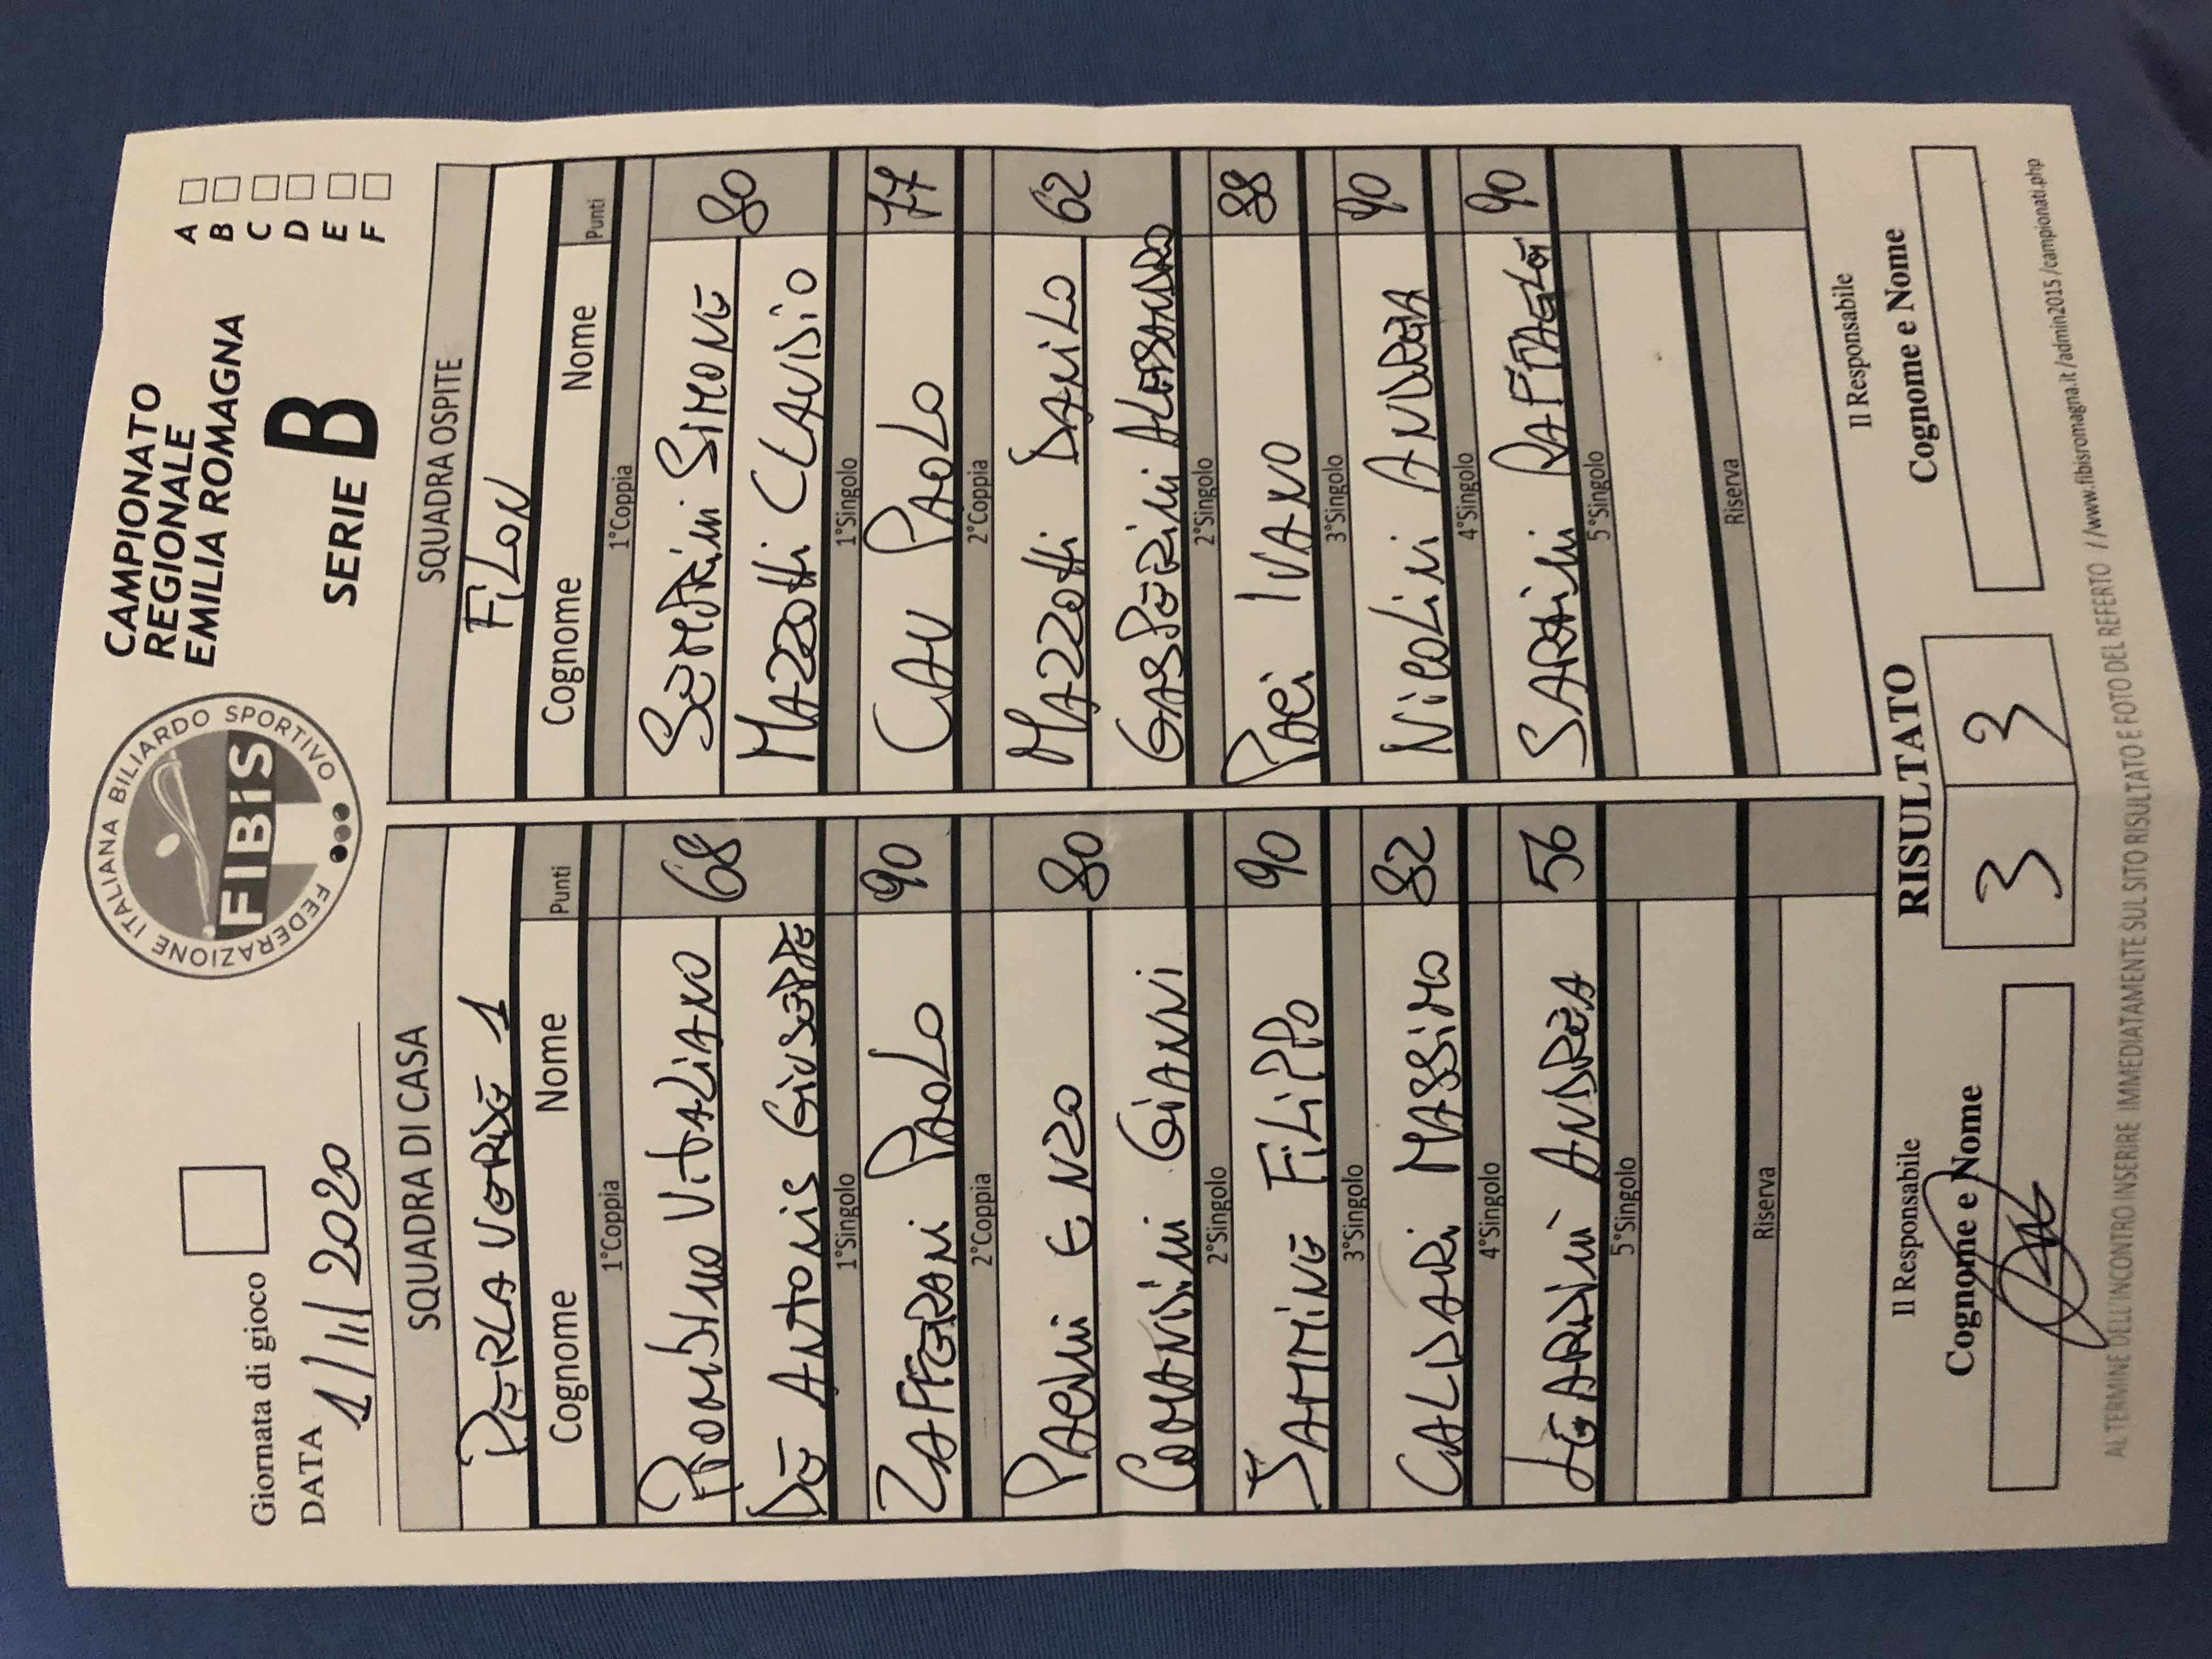 Giornata di gioco
DATA 1/11/2020
FEDERAZIONE ITALIANA BILIARDO SPORTIVO
FIBiS
CAMPIONATO
REGIONALE
EMILIA ROMAGNA
SERIE B
A
B
C
D
E
F
SQUADRA DI CASA
PERLA VERDE 1
Cognome Nome Punti
1°Coppia
PiOMBiNO ViTALiANO
DE ANTONIS GiUSEPPE
68
1°Singolo
ZAFFERANI PAOLO 90
2°Coppia
PAELini ENZO
COMANDini GiANNi
80
2°Singolo
FiLiPPO 90
3°Singolo
CALDARi MASSiMO 82
4°Singolo
LEARDini ANDREA 56
5°Singolo
Riserva
SQUADRA OSPITE
FiLON
Cognome Nome Punti
1°Coppia
SEMPRini SIMONE
MAZZOTTi CLAUDiO
80
1°Singolo
CAU PAOLO 77
2°Coppia
MAZZOTTi DANiLO
GASPERiNi ALESSANDRO
62
2°Singolo
PACi IVANO 88
3°Singolo
NiCOLiNi ANDREA 90
4°Singolo
SARTiNi 90
5°Singolo
Riserva
Il Responsabile
Cognome e Nome
RISULTATO
3 3
Il Responsabile
Cognome e Nome
AL TERMINE DELL'INCONTRO INSERIRE IMMEDIATAMENTE SUL SITO RISULTATO E FOTO DEL REFERTO //www.fibisromagna.it/admin2015/campionati.php